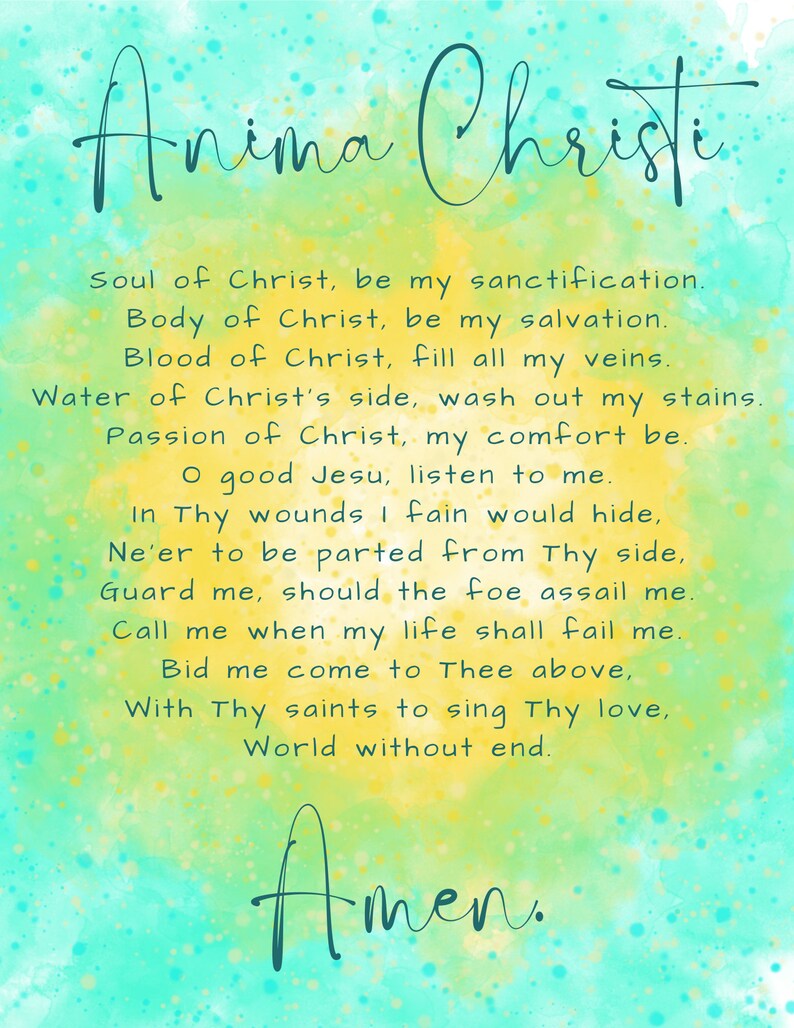 Anima Christi
Soul of Christ, be my sanctification.
Body of Christ, be my salvation.
Blood of Christ, fill all my veins.
Water of Christ's side, wash out my stains.
Passion of Christ, my comfort be.
O good Jesu, listen to me.
In Thy wounds I fain would hide,
Ne'er to be parted from Thy side,
Guard me, should the foe assail me.
Call me when my life shall fail me.
Bid me come to Thee above,
With Thy saints to sing Thy love,
World without end.
Amen.